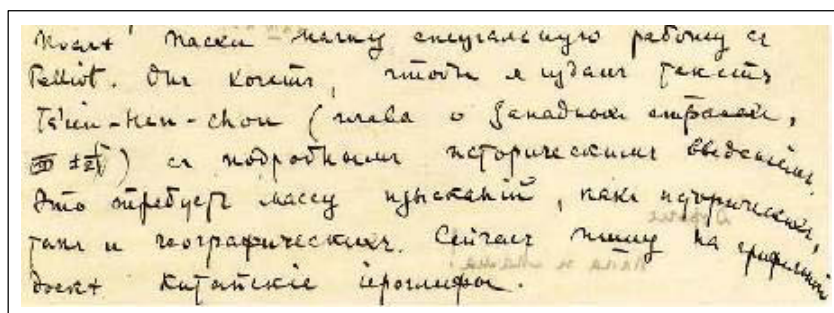 Послѣ Пасхи начну спеціальную работу съ
Pelliot. Онъ хочетъ, чтобы я издалъ текстъ
Ts'ien-Han-chou (глава о Западныхъ странахъ,
西域) съ подробнымъ историческимъ введеніемъ.
Это требуетъ массу изысканій, какъ историческихъ,
такъ и географическихъ. Сейчасъ пишу на грифельной
доскѣ китайскіе іероглифы.